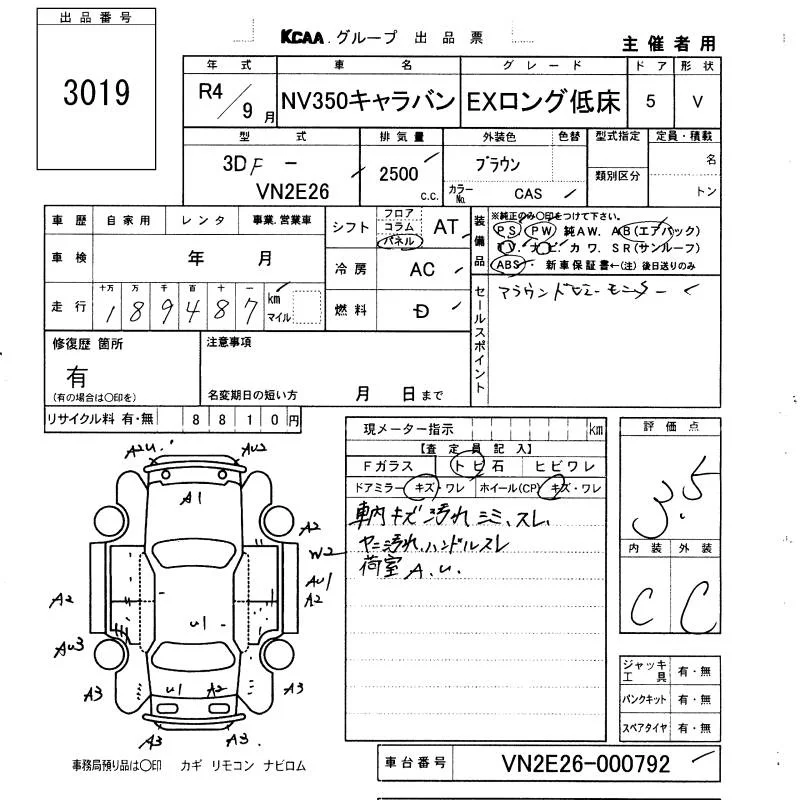 出品番号
3019
KCAA グループ 出品票
主催者用
年式 車名 グレード ドア 形状
R4/9月 NV350キャラバン EXロング低床 5 V
型式 排気量 外装色 色替 型式指定 定員・積載
3DF - VN2E26 2500 c.c. ブラウン 類別区分 名
カラーNo. CAS トン
車歴 自家用 レンタ 事業.営業車
シフト フロア コラム パネル AT
装備品 ※純正のみ○印をつけて下さい。
PS PW 純AW. AB(エアバック)
TV. ナビ. カワ. SR(サンルーフ)
ABS・新車保証書←(注) 後日送りのみ
車検 年 月
冷房 AC
走行 十万 万 千 百 十 一
189487 km マイル
燃料 D
セールスポイント
アラウンドビューモニター
修復歴 箇所
有
(有の場合は○印を)
注意事項
名変期日の短い方 月 日まで
リサイクル料 有・無 8810円
現メーター指示 km
【査定員記入】
Fガラス トビ石 ヒビワレ
ドアミラー キズ・ワレ ホイール(CP) キズ・ワレ
車内キズ汚れシミ、スレ
ヤニ汚れ、ハンドルスレ
荷室 A.U.
評価点
3.5
内装 外装
C C
A2 U. AU2
A1
A2
W2
AU1
A2 A2
U1
AU3
A3 U1 A2 A3
A3 A3
ジャッキ 工具 有・無
パンクキット 有・無
スペアタイヤ 有・無
事務局預り品は○印 カギ リモコン ナビロム
車台番号 VN2E26-000792